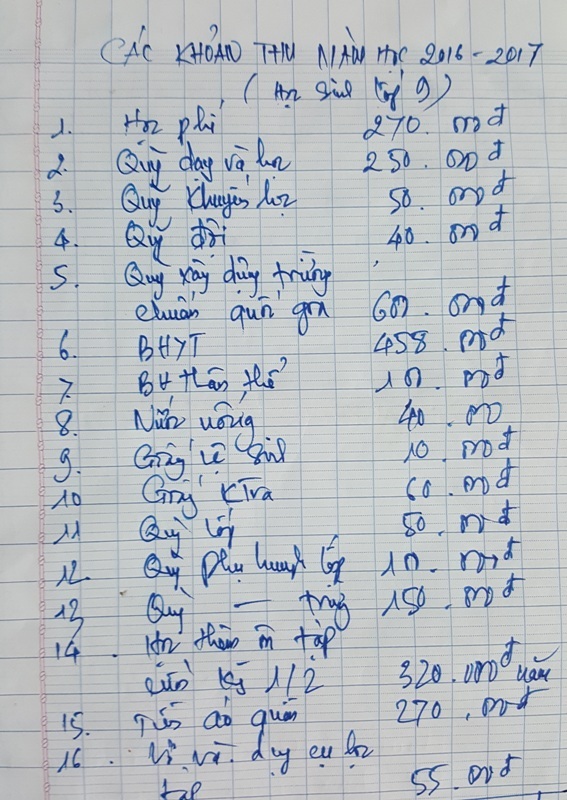 CÁC KHOẢN THU NĂM HỌC 2016 - 2017
(Học sinh lớp 9)
1. Học phí 270.000đ
2. Quỹ dạy và học 250.000đ
3. Quỹ khuyến học 50.000đ
4. Quỹ đội 40.000đ
5. Quỹ xây dựng trường
chuẩn quốc gia 600.000đ
6. BHYT 458.000đ
7. BH thân thể 100.000đ
8. Nước uống 40.000
9. Giấy vệ sinh 10.000đ
10 Giấy KTra 60.000đ
11 Quỹ lớp 50.000đ
12 Quỹ phụ huynh lớp 100.000đ
13 Quỹ — trường 150.000đ
14. Học thêm ôn tập
cuối kỳ 1/2 320.000đ/năm
15. Tiền áo quần 270.000đ
16. Vở và dụng cụ học
tập 55.000đ